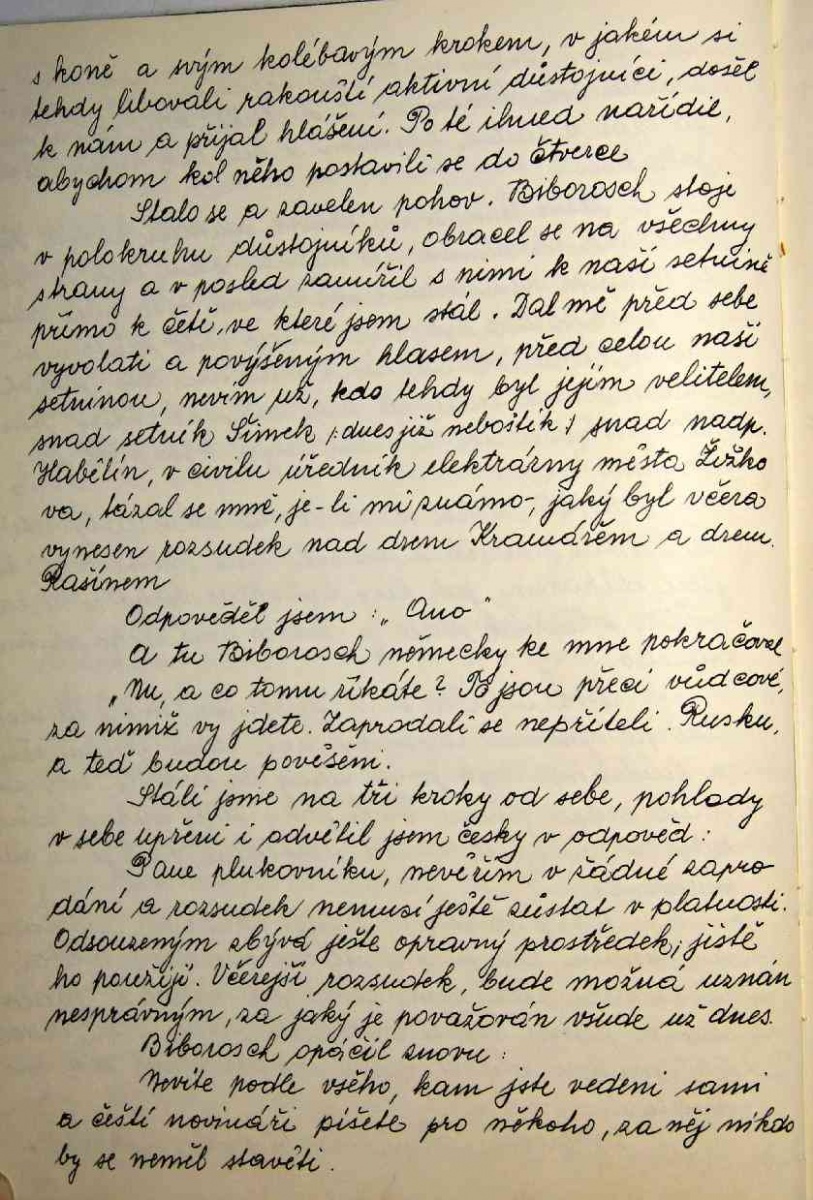 s koně a svým kolébavým krokem, v jakém si
tehdy libovali rakouští aktivní důstojníci, došel
k nám a přijal hlášení. Po té ihned nařídil,
abychom kol něho postavili se do čtverce
Stalo se a zavelen pohov. Biborosch stoje
v polokruhu důstojníků, obracel se na všechny
strany a v posled zamířil s nimi k naší setnině
přímo k četě, ve které jsem stál. Dal mě před sebe
vyvolati a povýšeným hlasem, před celou naší
setninou, nevím už, kdo tehdy byl jejím velitelem,
snad setník Šimek /: dnes již nebožtík :/ snad nadp.
Habětín, v civilu úředník elektrárny města Žižko
va, tázal se mně, je-li mi známo, jaký byl včera
vynesen rozsudek nad drem Kramářem a drem.
Rašínem
Odpověděl jsem: „Ano"
A tu Biborosch německy ke mne pokračoval
„Nu, a co tomu říkáte? To jsou přeci vůdcové,
za nimiž vy jdete. Zaprodali se nepříteli. Rusku,
a teď budou pověšeni.
Stáli jsme na tři kroky od sebe, pohledy
v sebe upřeni i odvětil jsem česky v odpověd:
Pane plukovníku, nevěřím v žádné zapro
dání a rozsudek nemusí ještě zůstat v platnosti.
Odsouzeným zbývá ješte opravný prostředek; jistě
ho použijí. Včerejší rozsudek, bude možná uznán
nesprávným, za jaký je považován všude už dnes.
Biborosch opáčil znovu:
Nevíte podle všeho, kam jste vedeni sami
a čeští novináři píšete pro někoho, za něj nikdo
by se neměl stavěti.